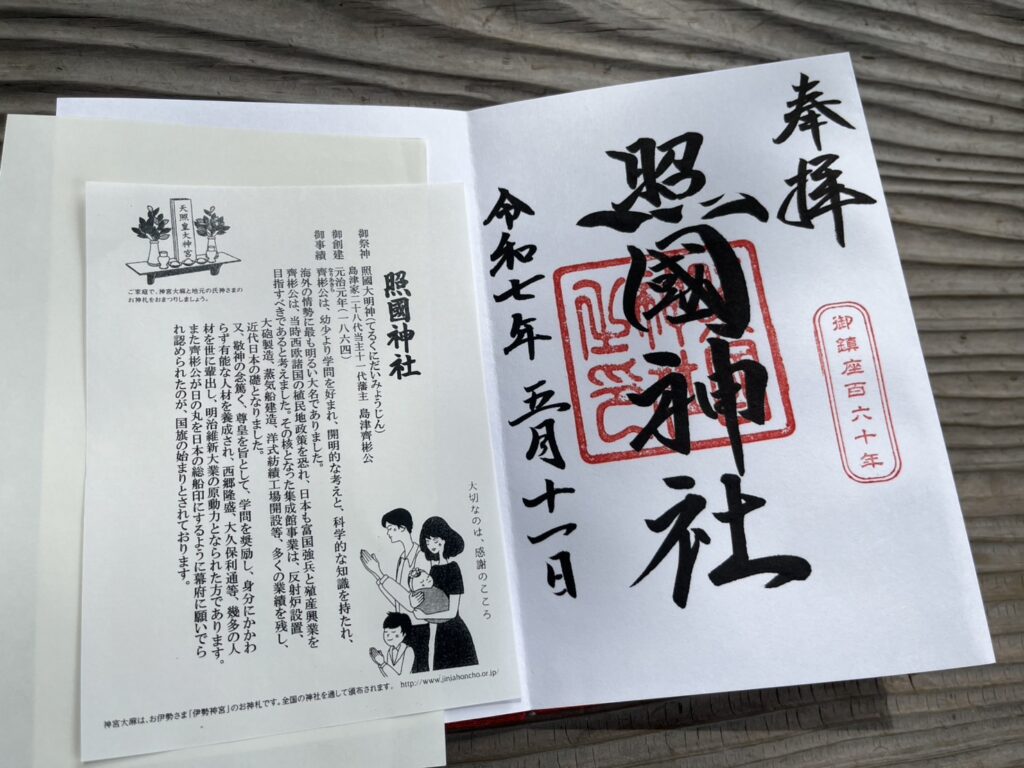 奉拝
照國神社
令和七年 五月十一日
御鎮座百六十年
照國神社
御祭神 照國大明神(てるくにだいみょうじん)
島津家二十八代当主十一代藩主 島津齊彬公
御創建 元治元年(一八六四)
御事績 齊彬公は、幼少より学問を好まれ、開明的な考えと、科学的な知識を持たれ、
海外の情勢に最も明るい大名でありました。
齊彬公は、当時西欧諸国の植民地政策を恐れ、日本も富国強兵と殖産興業を
目指すべきであると考えました。その核となった集成館事業は、反射炉設置、
大砲製造、蒸気船建造、洋式紡績工場開設等、多くの業績を残し、
近代日本の礎となりました。
又、敬神の念篤く、尊皇を旨として、学問を奨励し、身分にかかわ
らず有能な人材を養成され、西郷隆盛、大久保利通等、幾多の人
材を世に輩出し、明治維新大業の原動力となられた方であります。
また齊彬公が日の丸を日本の総船印にするように幕府に願いでら
れ認められたのが、国旗の始まりとされております。
天照皇大神宮
ご家庭で、神宮大麻と地元の氏神さまの
お神札をおまつりしましょう。
大切なのは、感謝のこころ
神宮大麻は、お伊勢さま「伊勢神宮」のお神札です。全国の神社を通して頒布されます。 http://www.jinjahoncho.or.jp/